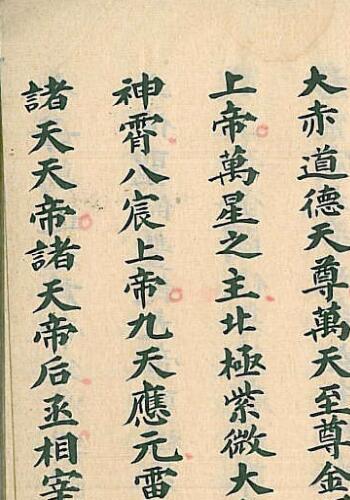 大赤道德天尊萬天至尊金
上帝萬星之主北極紫微大
神霄八宸上帝九天應元雷
諸天天帝諸天帝后丞相宰